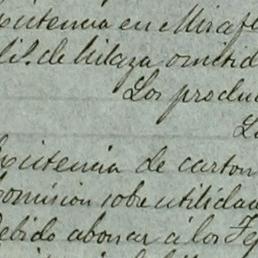 Existencia en Miraf
lis. de hilaza omitid
Los produ
Lo
Existencia de carton
Comision sobre utilidad
Debido abonar á los Fe